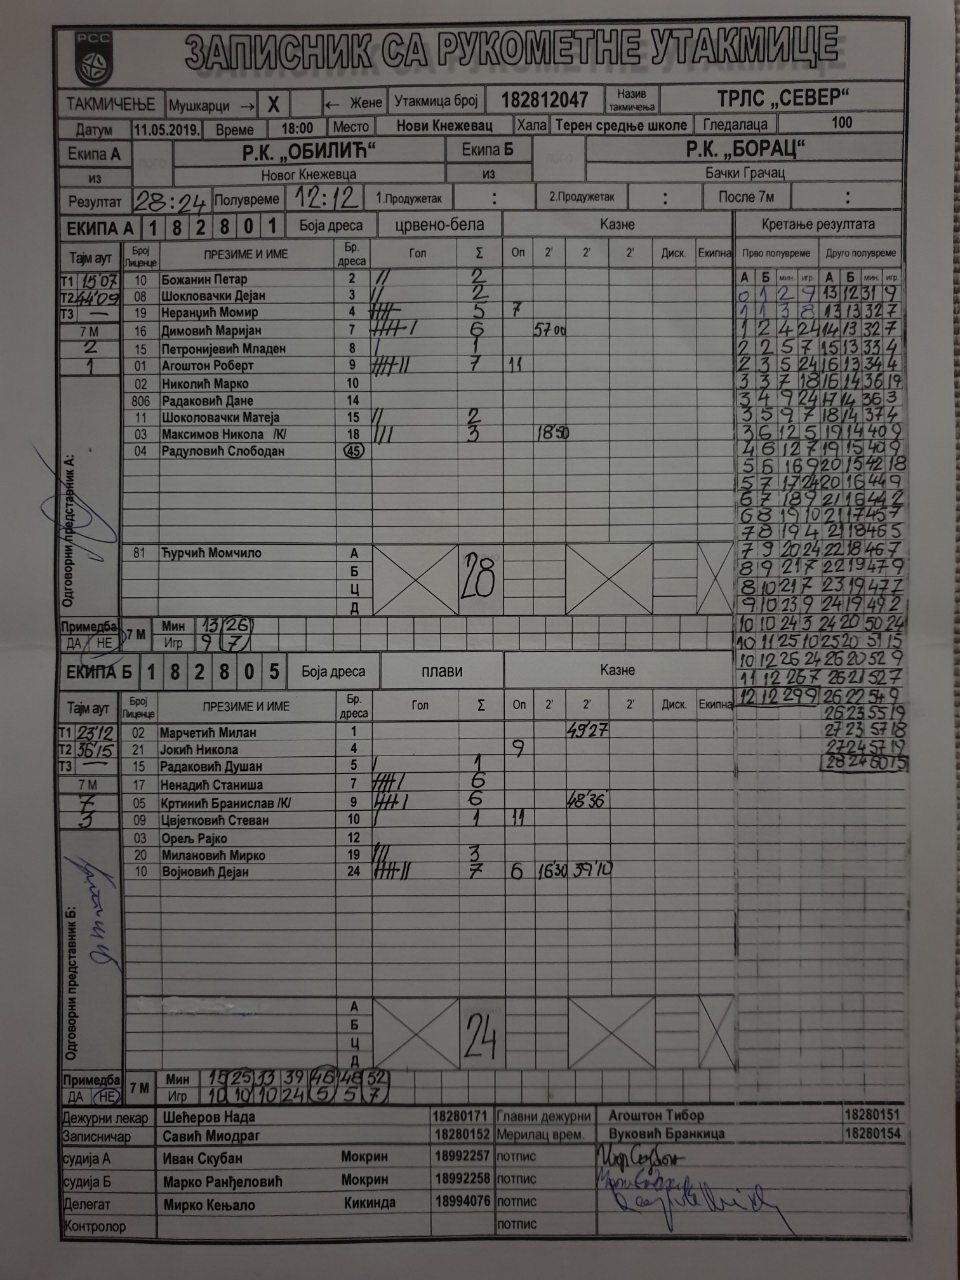 РСС
ЗАПИСНИК СА РУКОМЕТНЕ УТАКМИЦЕ
ТАКМИЧЕЊЕ Мушкарци → X ← Жене Утакмица број 182812047 Назив такмичења ТРЛС „СЕВЕР“
Датум 11.05.2019. Време 18:00 Место Нови Кнежевац Хала Терен средње школе Гледалаца 100
Екипа А Р.К. „ОБИЛИЋ“ Екипа Б Р.К. „БОРАЦ“
из Новог Кнежевца из Бачки Грачац
Резултат 28:24 Полувреме 12:12 1.Продужетак : 2.Продужетак : После 7м :
ЕКИПА А 1 8 2 8 0 1 Боја дреса црвено-бела Казне Кретање резултата
Тајм аут Број Лиценце ПРЕЗИМЕ И ИМЕ Бр. дреса Гол Σ Оп 2' 2' 2' Диск. Екипна Прво полувреме Друго полувреме
А Б мин. игр. А Б мин. игр.
Т1 15'07 10 Божанин Петар 2 // 2 0 1 2 9 13 12 31 9
Т2 44'09 08 Шокловачки Дејан 3 // 2 1 1 3 8 13 13 32 7
Т3 — 19 Неранџић Момир 4 5 7 1 2 4 24 14 13 32 7
7 М 16 Димовић Маријан 7 6 57 00 2 2 5 7 15 13 33 4
2 15 Петронијевић Младен 8 / 1 2 3 5 24 16 13 34 4
1 01 Агоштон Роберт 9 7 11 3 3 7 18 16 14 36 19
02 Николић Марко 10 3 4 9 24 17 14 36 3
806 Радаковић Дане 14 3 5 9 7 18 14 37 4
11 Шоколовачки Матеја 15 // 2 3 6 12 5 19 14 40 9
03 Максимов Никола /К/ 18 /// 3 18'50 4 6 12 7 19 15 40 9
04 Радуловић Слободан 45 5 6 16 9 20 15 42 18
5 7 17 24 20 16 44 9
6 7 18 9 21 16 44 2
6 8 19 10 21 17 45 7
7 8 19 4 21 18 46 5
Одговорни представник А:
81 Ћурчић Момчило А 28 7 9 20 24 22 18 46 7
Б 8 9 21 7 22 19 47 9
Ц 8 10 21 7 23 19 47 7
Д 9 10 23 9 24 19 49 2
Примедба 7 М Мин 13 26 10 10 24 3 24 20 50 24
ДА НЕ Игр 9 7 10 11 25 10 25 20 51 15
ЕКИПА Б 1 8 2 8 0 5 Боја дреса плави Казне 10 12 26 24 26 20 52 9
11 12 26 7 26 21 52 7
Тајм аут Број Лиценце ПРЕЗИМЕ И ИМЕ Бр. дреса Гол Σ Оп 2' 2' 2' Диск. Екипна 12 12 29 9 26 22 54 9
26 23 55 19
Т1 23'12 02 Марчетић Милан 1 49'27 27 23 57 18
Т2 36'15 21 Јокић Никола 4 9 27 24 57 19
Т3 — 15 Радаковић Душан 5 / 1 28 24 60 15
7 М 17 Ненадић Станиша 7 6
7 05 Кртинић Бранислав /К/ 9 6 48'36
3 09 Цвјетковић Стеван 10 / 1 11
03 Орељ Рајко 12
20 Милановић Мирко 19 /// 3
10 Војновић Дејан 24 7 6 16'30 39'10
Одговорни представник Б:
А 24
Б
Ц
Д
Примедба 7 М Мин 15 25 33 39 46 48 52
ДА НЕ Игр 10 10 10 24 5 5 7
Дежурни лекар Шећеров Нада 18280171 Главни дежурни Агоштон Тибор 18280151
Записничар Савић Миодраг 18280152 Мерилац врем. Вуковић Бранкица 18280154
судија А Иван Скубан Мокрин 18992257 потпис
судија Б Марко Ранђеловић Мокрин 18992258 потпис
Делегат Мирко Кењало Кикинда 18994076 потпис
Контролор потпис